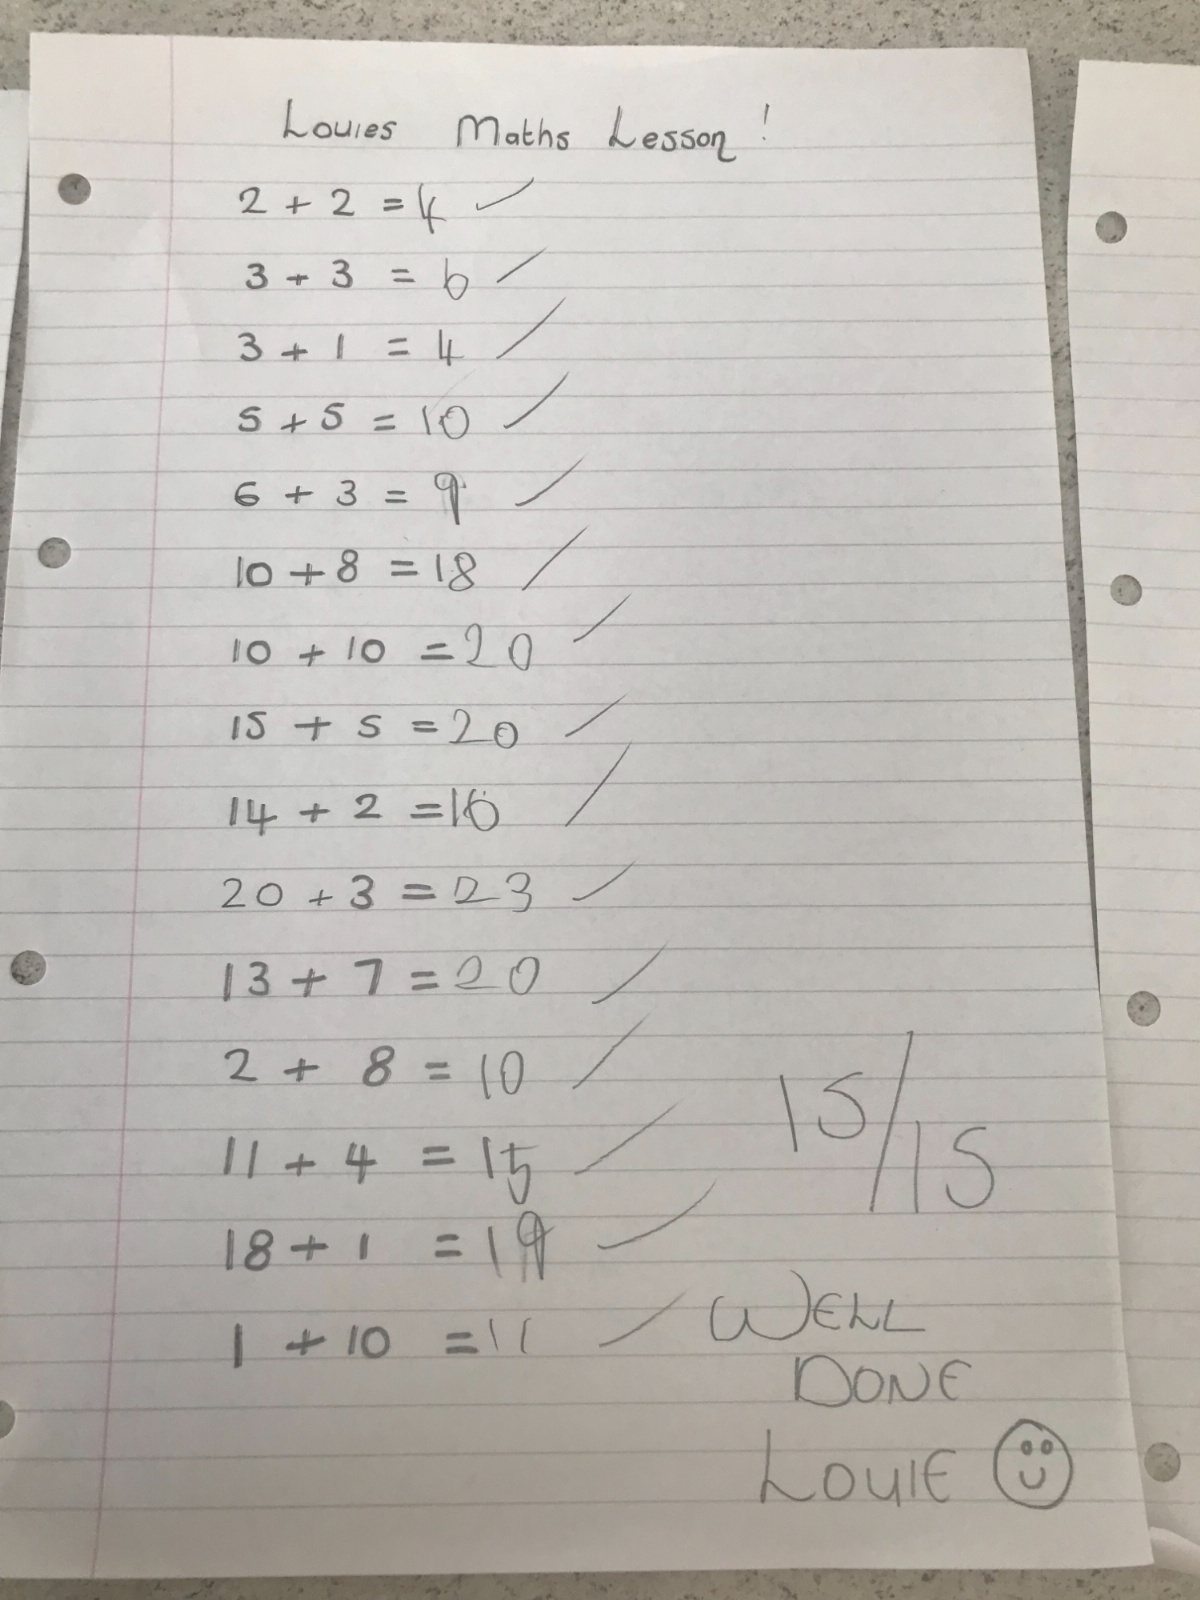 Louies Maths Lesson!
2 + 2 = 4 ✓
3 + 3 = 6 ✓
3 + 1 = 4 ✓
5 + 5 = 10 ✓
6 + 3 = 9 ✓
10 + 8 = 18 ✓
10 + 10 = 20 ✓
15 + 5 = 20 ✓
14 + 2 = 16 ✓
20 + 3 = 23 ✓
13 + 7 = 20 ✓
2 + 8 = 10 ✓
11 + 4 = 15 ✓
18 + 1 = 19 ✓
1 + 10 = 11 ✓
15/15
WELL
DONE
LOUIE ☺